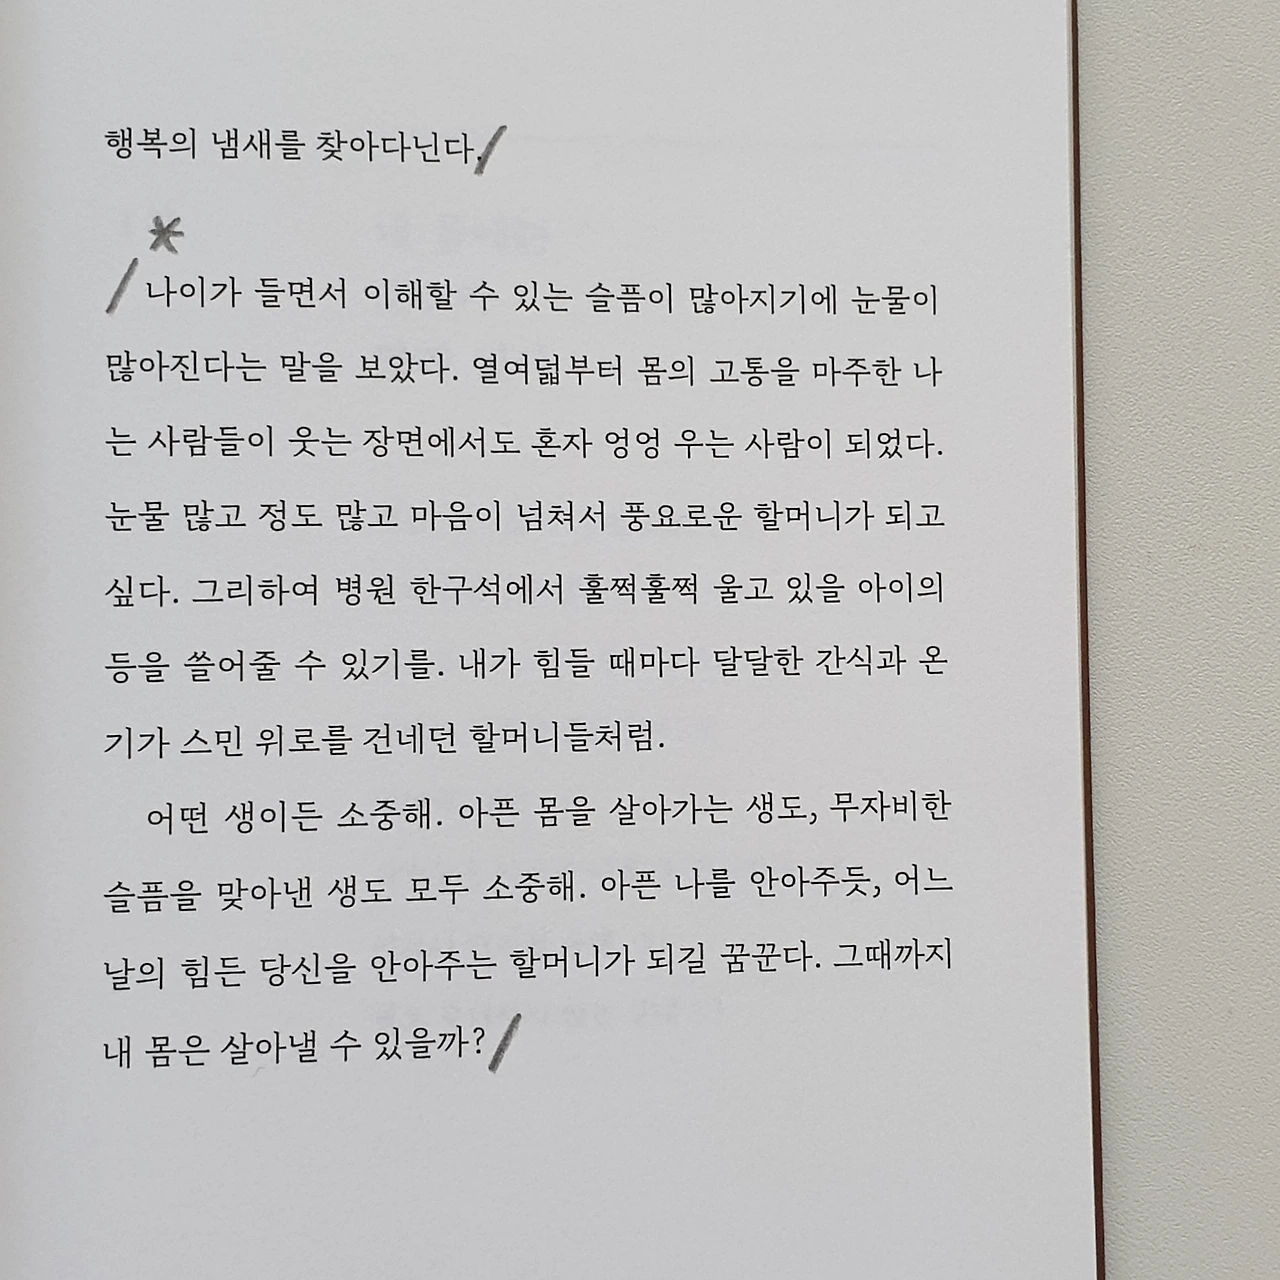 행복의 냄새를 찾아다닌다.
나이가 들면서 이해할 수 있는 슬픔이 많아지기에 눈물이
많아진다는 말을 보았다. 열여덟부터 몸의 고통을 마주한 나
는 사람들이 웃는 장면에서도 혼자 엉엉 우는 사람이 되었다.
눈물 많고 정도 많고 마음이 넘쳐서 풍요로운 할머니가 되고
싶다. 그리하여 병원 한구석에서 훌쩍훌쩍 울고 있을 아이의
등을 쓸어줄 수 있기를. 내가 힘들 때마다 달달한 간식과 온
기가 스민 위로를 건네던 할머니들처럼.
어떤 생이든 소중해. 아픈 몸을 살아가는 생도, 무자비한
슬픔을 맞아낸 생도 모두 소중해. 아픈 나를 안아주듯, 어느
날의 힘든 당신을 안아주는 할머니가 되길 꿈꾼다. 그때까지
내 몸은 살아낼 수 있을까?